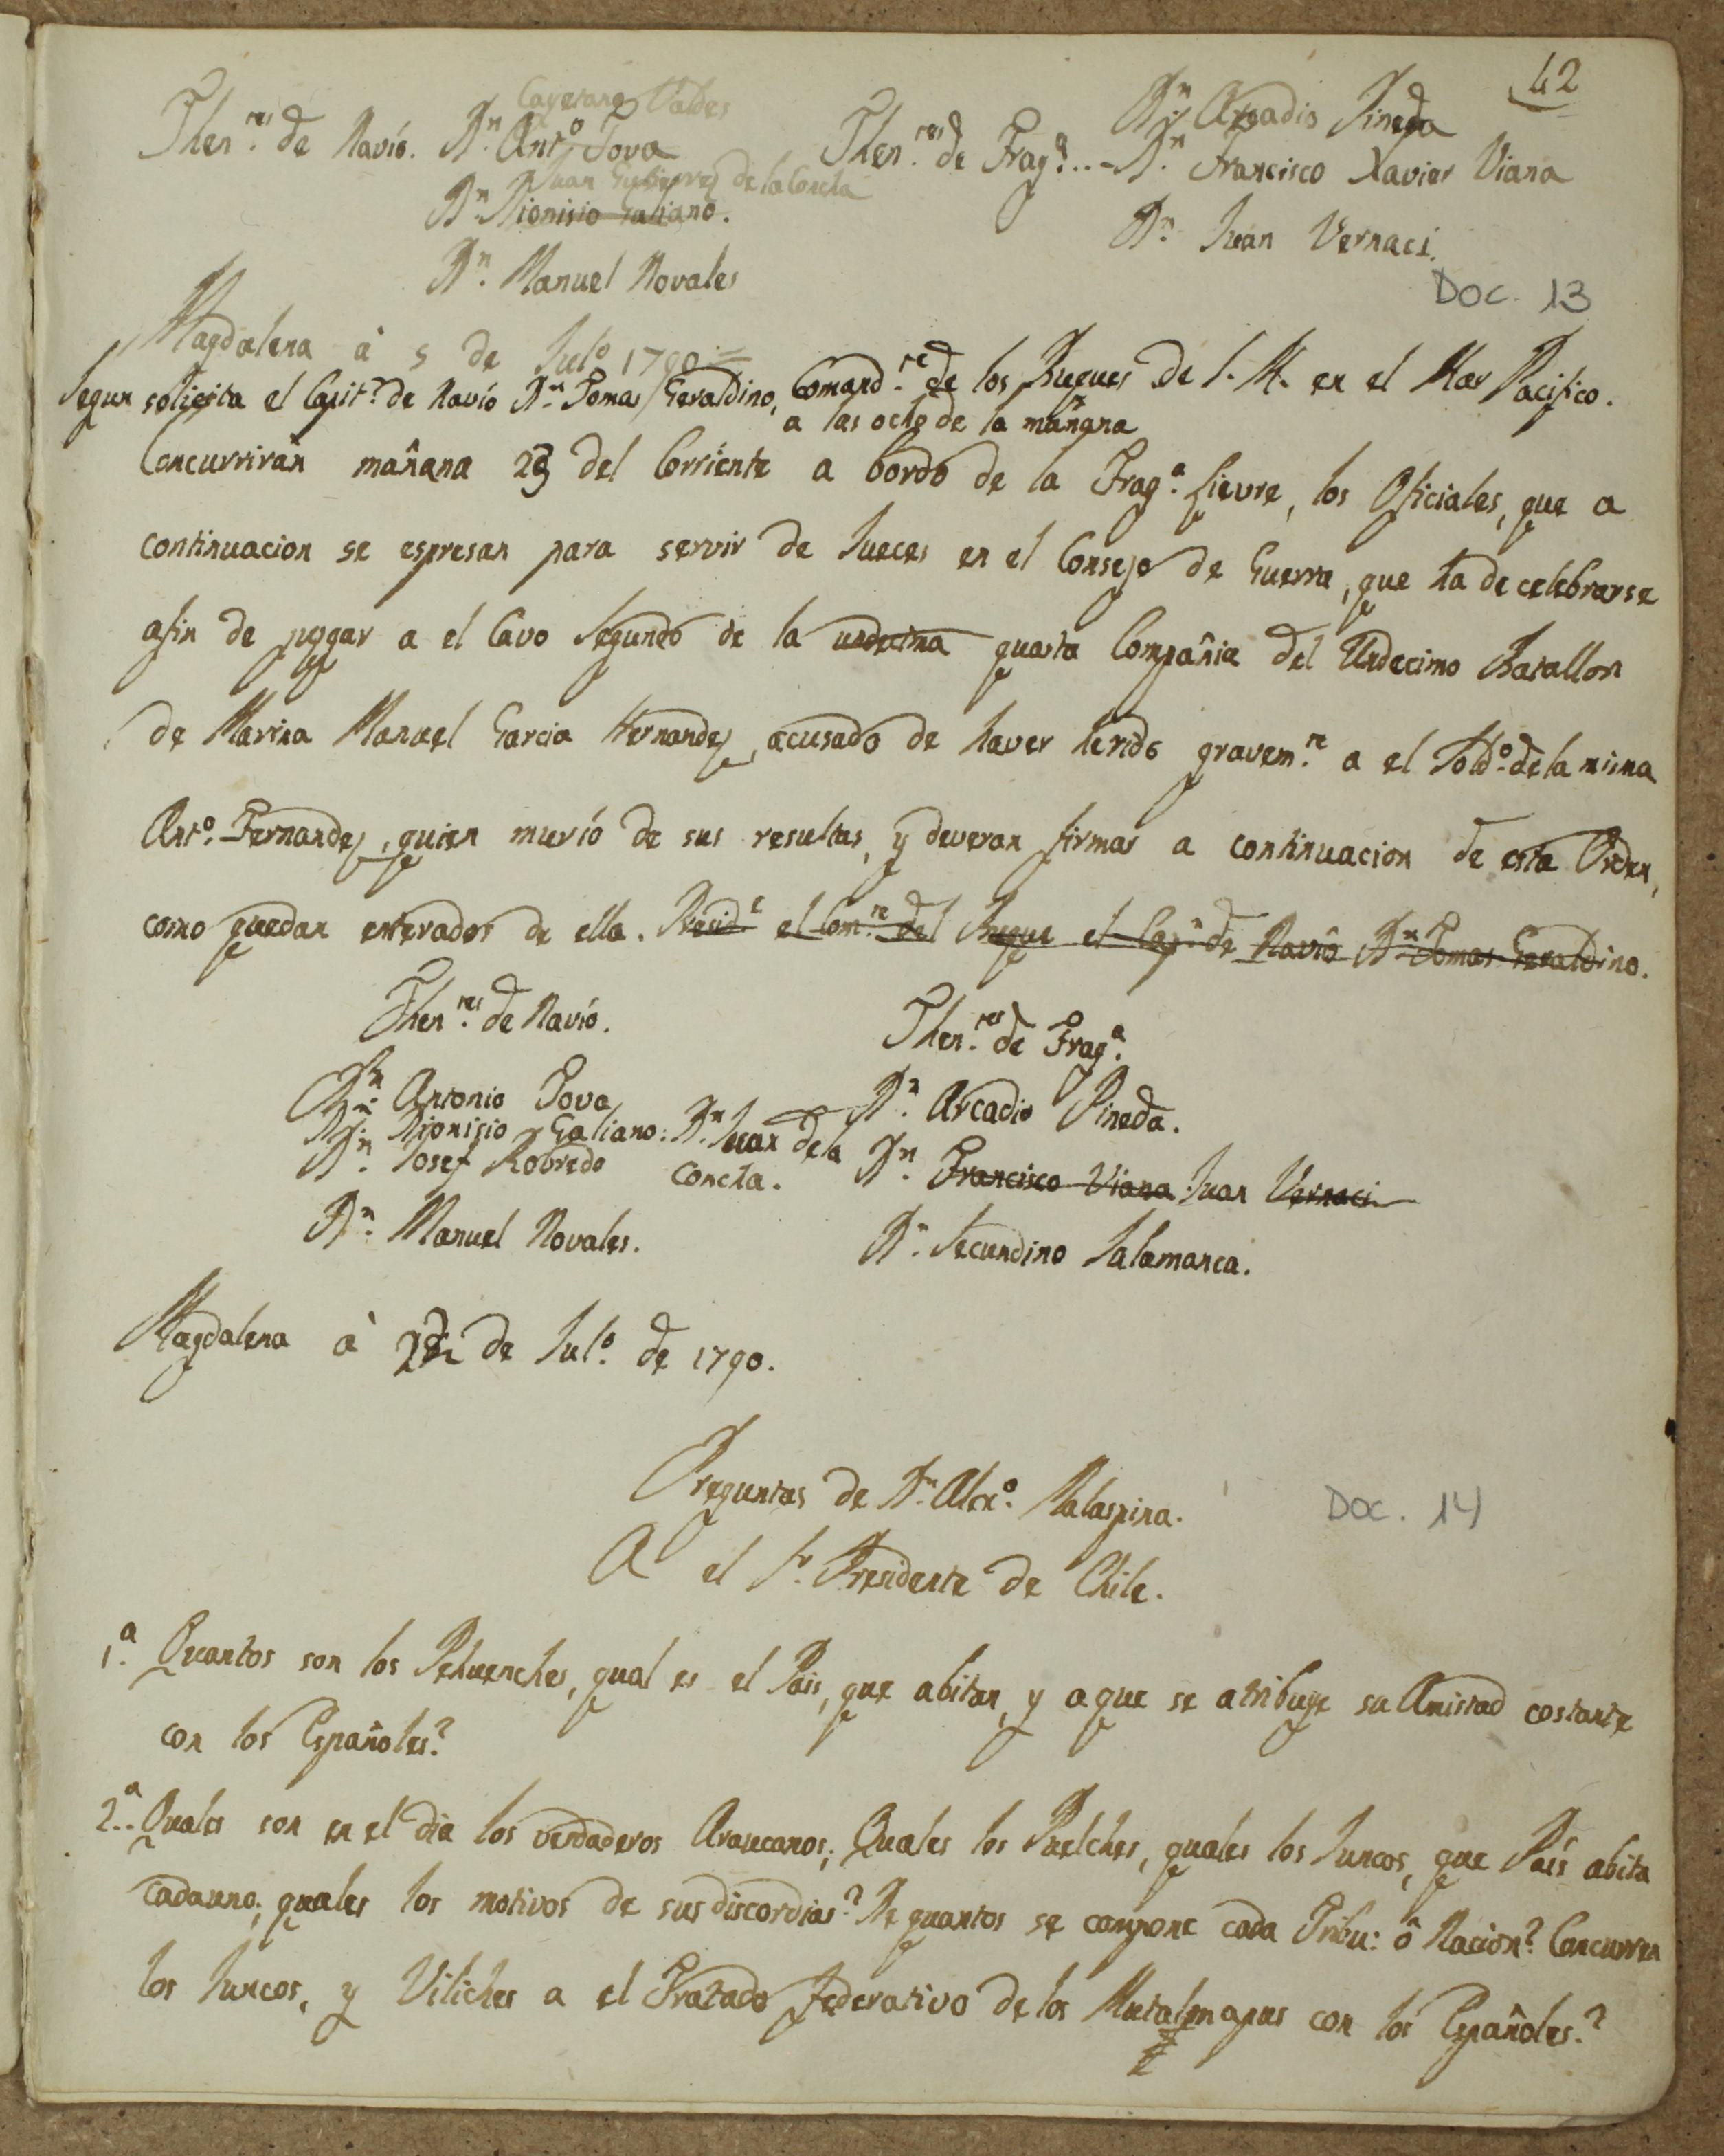 42
Cayetano Valdes
Then.res de Navío. Dn. Anto. Tova
Juan Gutierrez de la Concha
Dn. Dionisio Galiano.
Dn. Manuel Novales
Dn. Arcadio Pineda
Then.res de Frag.a .. Dn. Francisco Xavier Viana
Dn. Juan Vernaci.
Doc. 13
Magdalena à 5 de Julo 1790 =
Segun solicita el Capit.n de Navío Dn. Tomas Geraldino, Comand.te de los Buques de S. M. en el Mar Pacifico.
a las ocho de la mañana
Concurrirán mañana 23 del Corriente a bordo de la Frag.a Lievre, los Oficiales, que a
continuacion se espresan para servir de Jueces en el Consejo de Guerra, que ha de celebrarse
afin de juzgar a el Cavo Segundo de la undecima quarta Compañia del Undecimo Batallon
de Marina Manuel Garcia Hernandez, acusado de haver herido gravem.te a el Sold.o de la misma
Anto. Fernandez, quien murió de sus resultas, y deveran firmar a continuacion de esta Orden,
como quedan enterados de ella. Presid.e el Com.te del Buque el Cap.n de Navío Dn. Tomas Geraldino.
Then.res de Navío.
Dn. Antonio Tova
Dn. Dionisio Galiano: Dn. Juan de la
Concha.
Dn. Josef Robredo
Dn. Manuel Novales.
Then.res de Frag.a
Dn. Arcadio Pineda.
Dn. Francisco Viana Juan Vernaci
Dn. Secundino Salamanca.
Magdalena à de Jul.o de 1790.
Preguntas de Dn. Alex.o Malaspina.
Doc. 14
A el Sr. Presidente de Chile.
1.a Quantos son los Pehuenches, qual es el Pais, que abitan, y a que se atribuye su Amistad costante
con los Españoles?
2.a Quales son en el dia los verdaderos Araucanos; Quales los Puelches, quales los Juncos, que País abita
cada uno; quales los motivos de sus discordias? De quantos se compone cada Tribu: ô Nacion? Concurren
los Juncos, y Viliches a el Tratado federativo de los Mutalmapus con los Españoles?